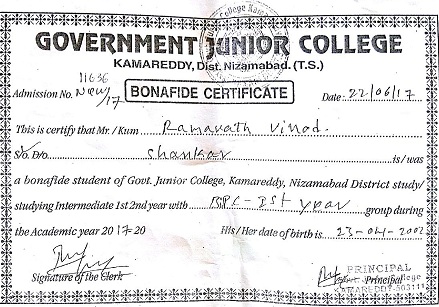 GOVERNMENT JUNIOR COLLEGE
KAMAREDDY, Dist. Nizamabad. (T.S.)
11636
Admission No. New/17 BONAFIDE CERTIFICATE Date: 22/06/17
This is certify that Mr. / Kum Ramavath Vinod.
S/o. D/o Shankar is / was
a bonafide student of Govt. Junior College, Kamareddy, Nizamabad District study/
studying Intermediate 1st 2nd year with BPC - Ist year group during
the Academic year 2017 20 His / Her date of birth is 23-04-2002
Signature of the Clerk
PRINCIPAL
Principal College
KAMAREDDY-503111